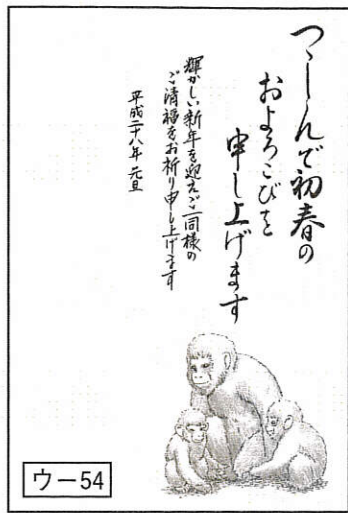 つゝしんで初春の
およろこびを
申し上げます
輝かしい新年を迎えご一同様の
ご清福をお祈り申し上げます
平成二十八年 元旦
ウー54